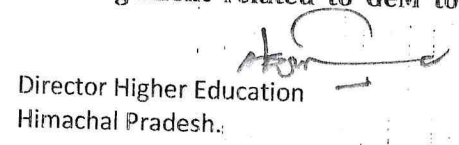 related to GeM to
Director Higher Education
Himachal Pradesh.